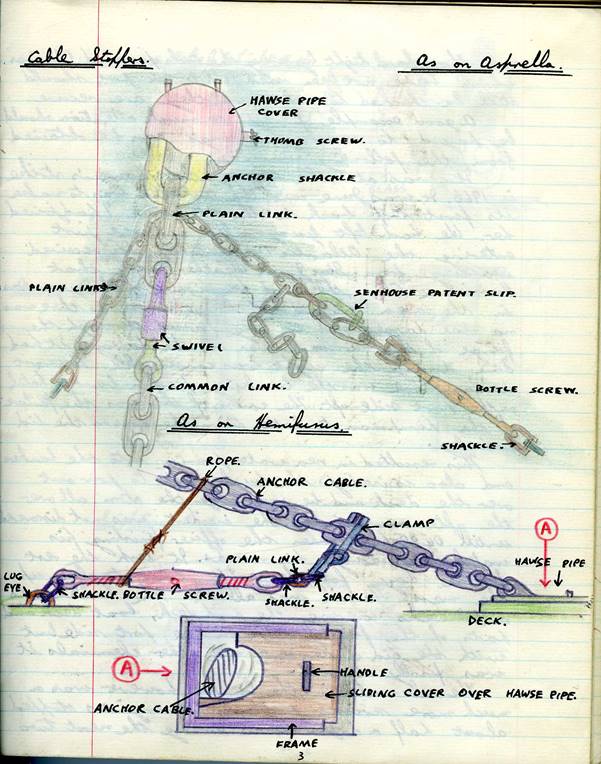 Cable Stoppers.
As on Asprella.
HAWSE PIPE
COVER
THUMB SCREW.
ANCHOR SHACKLE
PLAIN LINK.
PLAIN LINKS
SENHOUSE PATENT SLIP.
SWIVEL
COMMON LINK.
BOTTLE SCREW.
SHACKLE.
As on Hemifusus.
ROPE.
ANCHOR CABLE.
CLAMP
A
PLAIN LINK.
HAWSE PIPE
LUG
EYE
SHACKLE. BOTTLE SCREW.
SHACKLE.
SHACKLE.
DECK.
A
HANDLE
SLIDING COVER OVER HAWSE PIPE.
ANCHOR CABLE.
FRAME
3